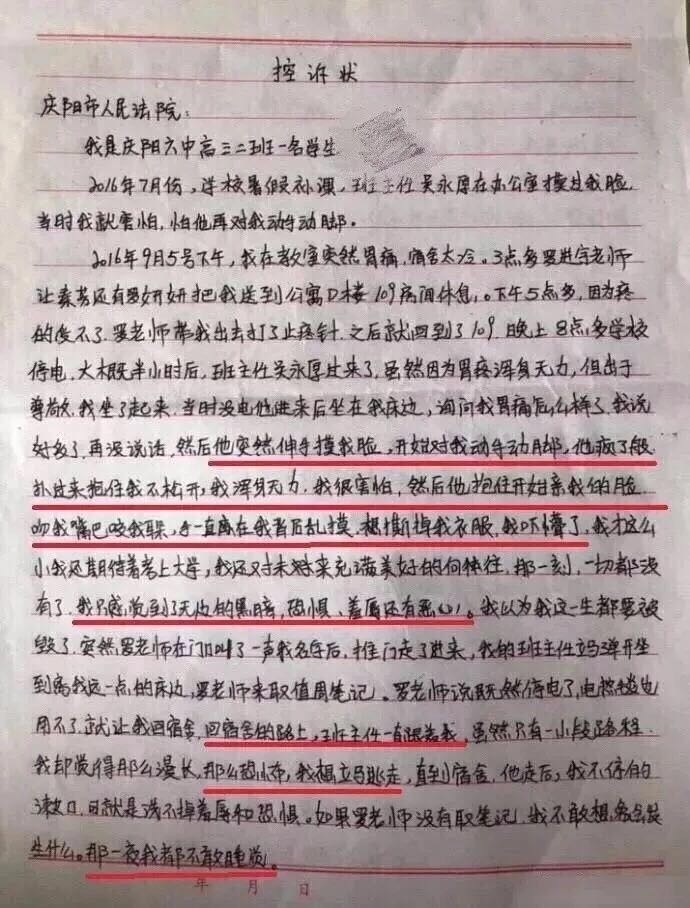 控诉状
庆阳市人民法院：
我是庆阳六中高三二班一名学生
2016年7月份，学校暑假补课，班主任吴永厚在办公室摸过我脸，
当时我就害怕，怕他再对我动手动脚。
2016年9月5号下午，我在教室突然胃痛，宿舍太冷。3点多罗进宇老师
让素芳还有罗妍妍把我送到公寓D楼109房间休息。下午5点多，因为疼
的受不了.罗老师带我出去打了止疼针.之后就回到了109.晚上8点多学校
停电.大概半小时后，班主任吴永厚过来了，虽然因为胃疼浑身无力，但出于
尊敬.我坐了起来.当时没电他进来后坐在我床边，询问我胃痛怎么样了.我说
好多了.再没说话，然后他突然伸手摸我脸，开始对我动手动脚，他疯了般
扑过来抱住我不松开，我浑身无力.我很害怕，然后他抱住开始亲我的脸
吻我嘴巴咬我耳朵，手一直在我背后乱摸.想撕掉我衣服，我吓懵了，我才这么
小我还期待着考上大学，我还对未来充满美好的向往，那一刻，一切都没
有了.我只感觉到了无边的黑暗，恐惧、羞辱还有恶心。我以为我这一生都要被
毁了.突然罗老师在门口叫了一声我名字后，推门走了进来，我的班主任立马弹开坐
到离我远一点的床边，罗老师来取值周笔记。罗老师说既然停电了，电热毯也
用不了.就让我回宿舍，回宿舍的路上，班主任一直跟着我，虽然只有一小段路程.
我却觉得那么漫长，那么恐怖，我想立马逃走，直到宿舍，他走后，我不停的
漱口，可就是洗不掉羞辱和恐惧。如果罗老师没有取笔记，我不敢想象会发
生什么。那一夜我都不敢睡觉。
年 月 日